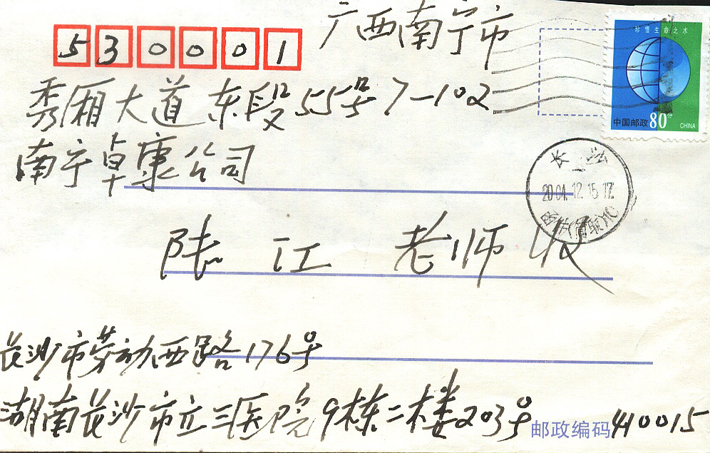 530001
广西南宁市
珍惜生命之水
中国邮政 80分 CHINA
秀厢大道东段55号7-102
南宁卓康公司
长沙
2004.12.15.17
陆江老师收
长沙市劳动西路176号
湖南长沙市立三医院9栋二楼203号 邮政编码 410015